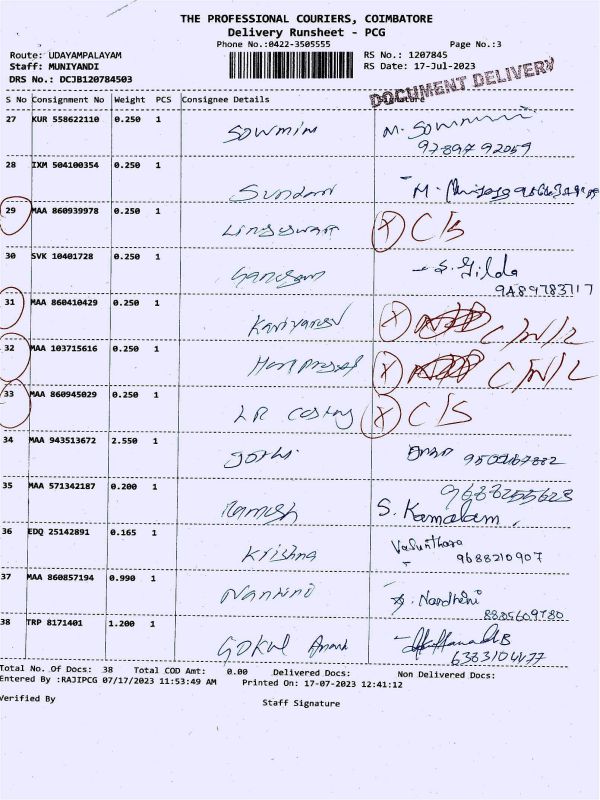 THE PROFESSIONAL COURIERS, COIMBATORE
Delivery Runsheet - PCG
Phone No.:0422-3505555 Page No.:3
Route: UDAYAMPALAYAM RS No.: 1207845
Staff: MUNIYANDI RS Date: 17-Jul-2023
DRS No.: DCJB120784503
DOCUMENT DELIVERY
S No Consignment No Weight PCS Consignee Details Signature
27 KUR 558622110 0.250 1 Sowmim M. Sowmini
97897 92059
28 IXM 504100354 0.250 1 Sundari M.
29 MAA 860939978 0.250 1 Lingeswari X C/S
30 SVK 10401728 0.250 1 S. Gilda
9489783717
31 MAA 860410429 0.250 1 X C/N/L
32 MAA 103715616 0.250 1 Hariprasad X C/N/L
33 MAA 860945029 0.250 1 LR X C/S
34 MAA 943513672 2.550 1 Jothi
35 MAA 571342187 0.200 1 Ramesh 9633255623
S. Kamalam.
36 EDQ 25142891 0.165 1 Krishna Vasunthara
9688210907
37 MAA 860857194 0.990 1 Nandhini S. Nandhini
8805609780
38 TRP 8171401 1.200 1 Gokul Anand
6383104477
Total No. Of Docs: 38 Total COD Amt: 0.00 Delivered Docs: Non Delivered Docs:
Entered By :RAJIPCG 07/17/2023 11:53:49 AM Printed On: 17-07-2023 12:41:12
Verified By Staff Signature